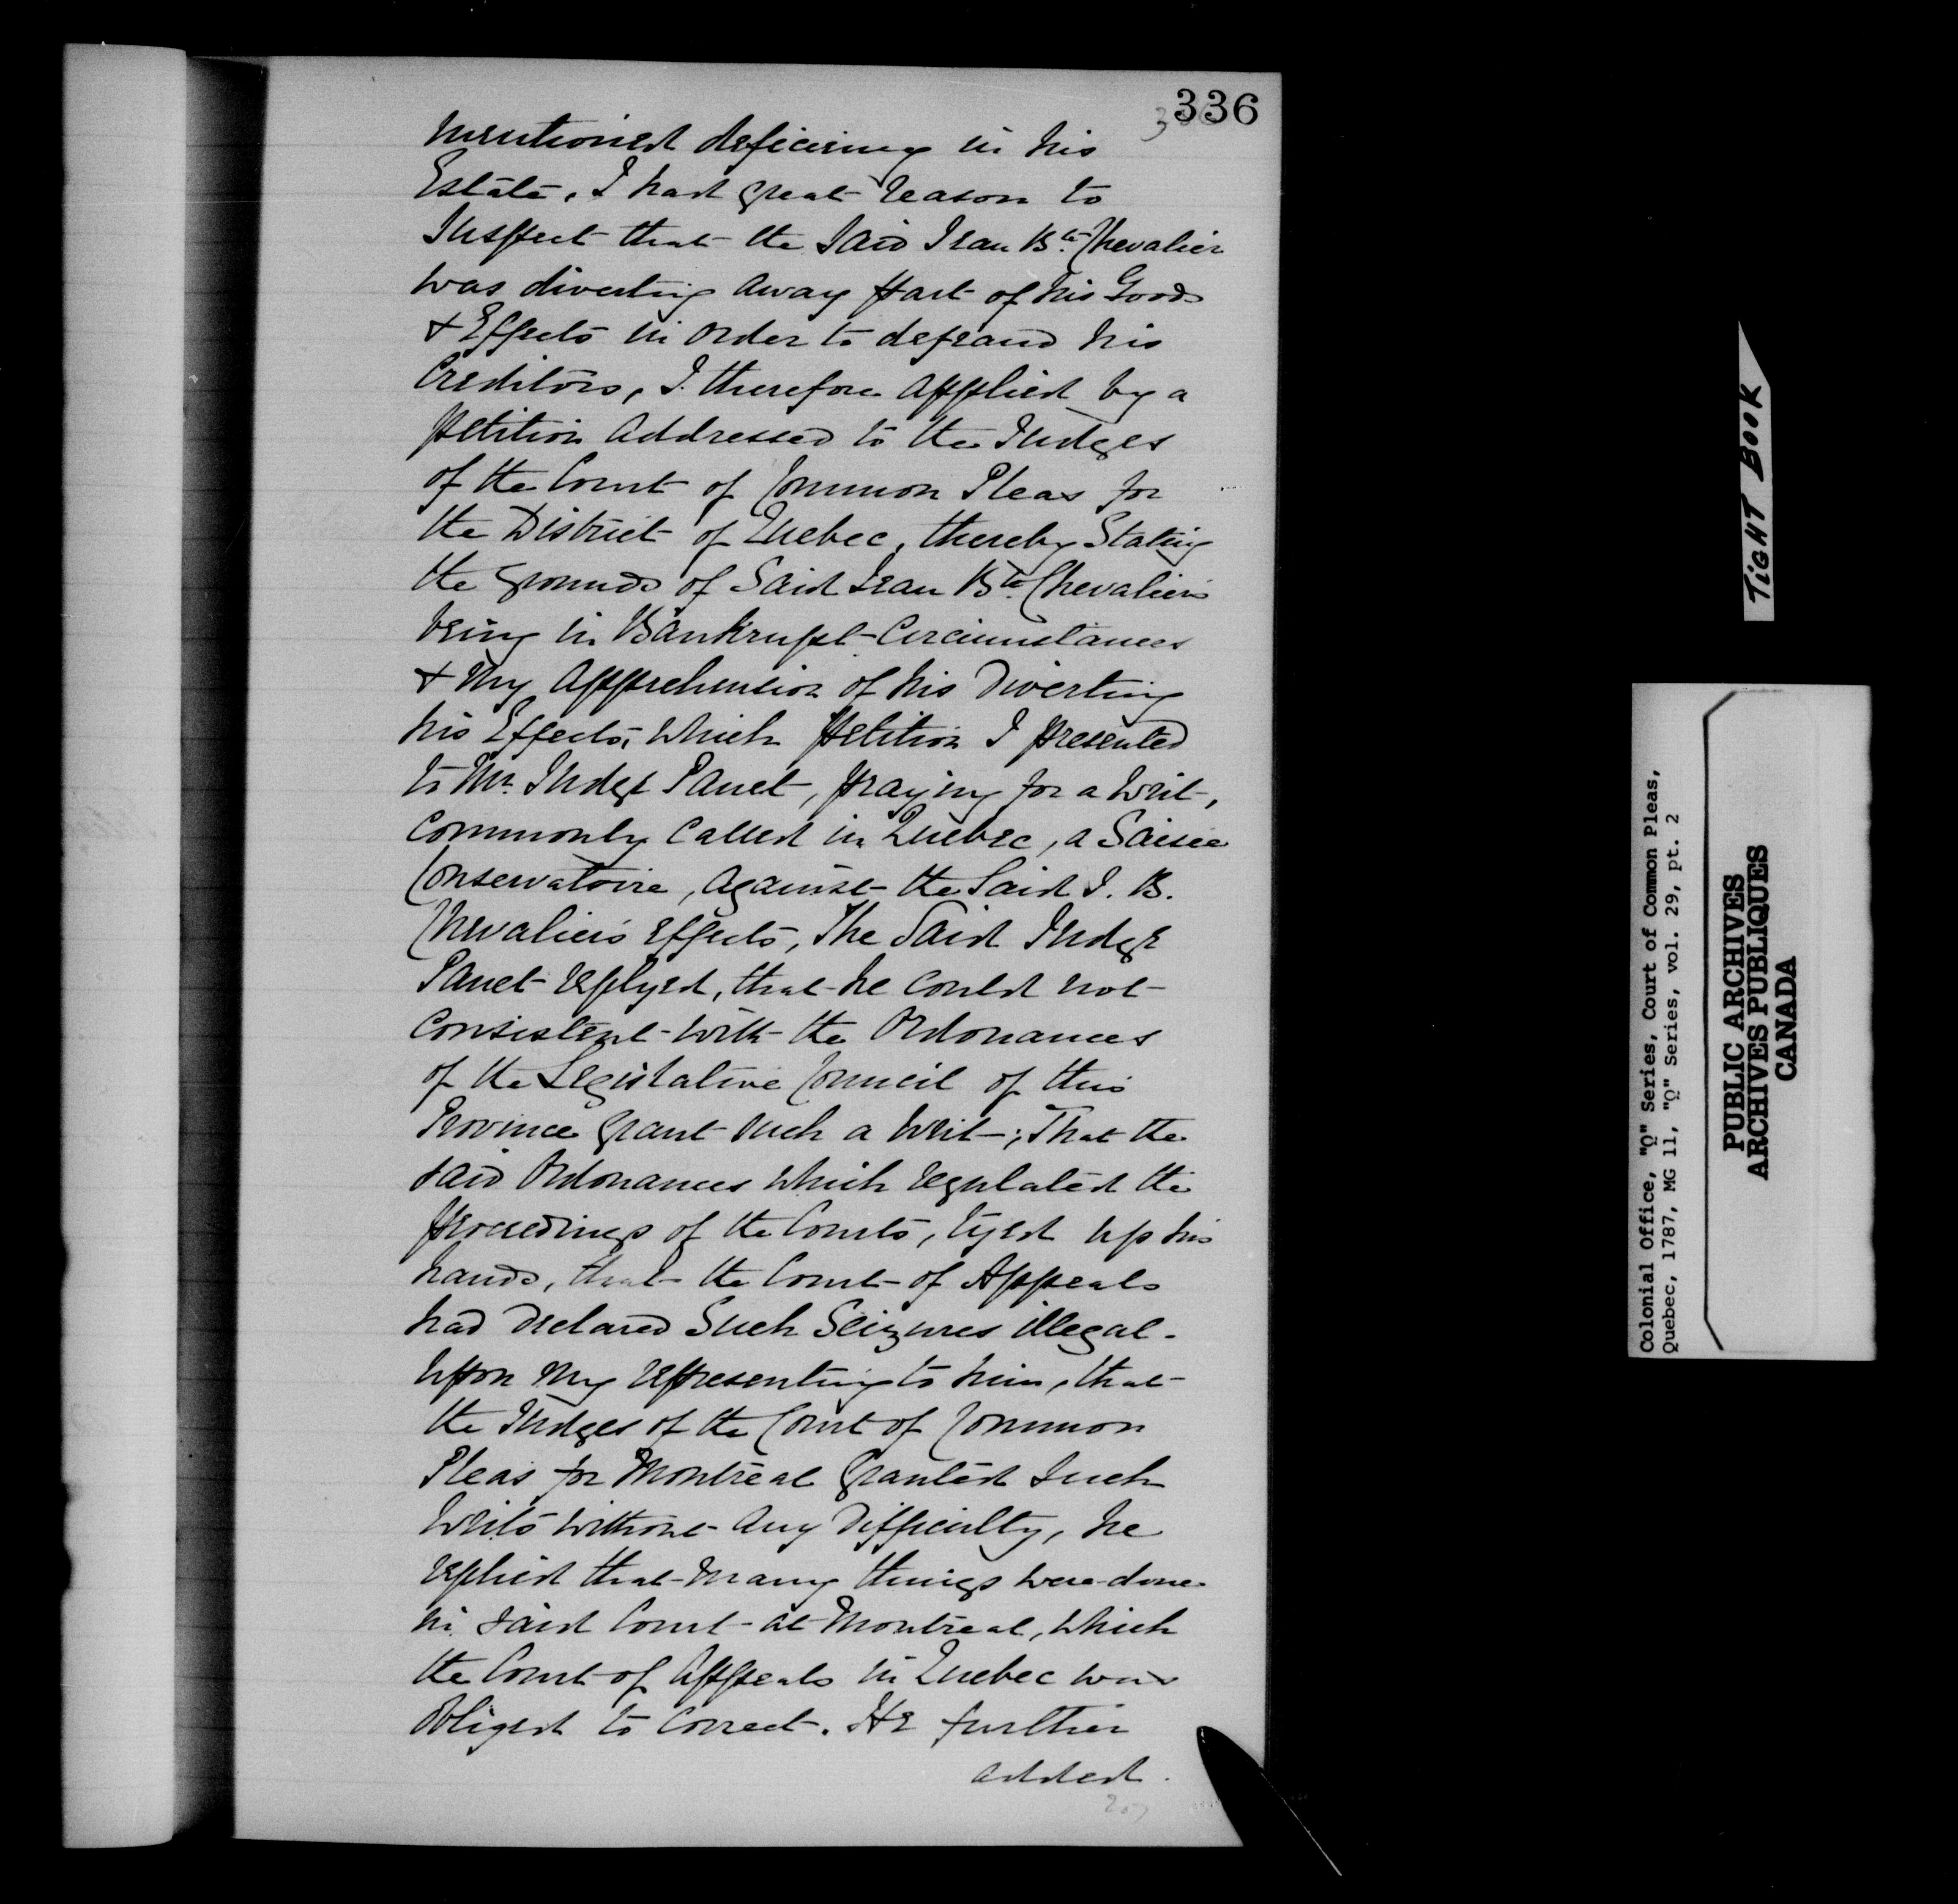 336
mentioned deficiency in his
Estate, I had great reason to
Suspect that the said Jean Bte. Chevalier
was diverting away part of his Goods
& Effects in order to defraud his
Creditors, I therefore applied by a
petition addressed to the Judges
of the Court of Common Pleas for
the District of Quebec, thereby Stating
the grounds of Said Jean Bte. Chevalier's
being in Bankrupt Circumstances
& My Apprehension of his Diverting
his Effects, which petition I presented
to Mr. Judge Panet, praying for a Writ,
Commonly Called in Quebec, a Saisie
Conservatoire, against the Said J. B.
Chevalier's Effects, The Said Judge
Panet replyed, that he Could not
Consistent with the Ordonances
of the Legislative Council of this
Province grant such a Writ; That the
said Ordonances which regulated the
proceedings of the Courts, tyed up his
hands, that the Court of Appeals
had Declared Such Seizures illegal.
Upon My representing to him, that
the Judges of the Court of Common
Pleas for Montreal Granted Such
Writs without any Difficulty, he
replied that many things were done
in said Court at Montreal, which
the Court of Appeals in Quebec was
Obliged to Correct. He further
added.
207
TIGHT BOOK
Colonial Office, "Q" Series, Court of Common Pleas,
Quebec, 1787, MG 11, "Q" Series, vol. 29, pt. 2
PUBLIC ARCHIVES
ARCHIVES PUBLIQUES
CANADA